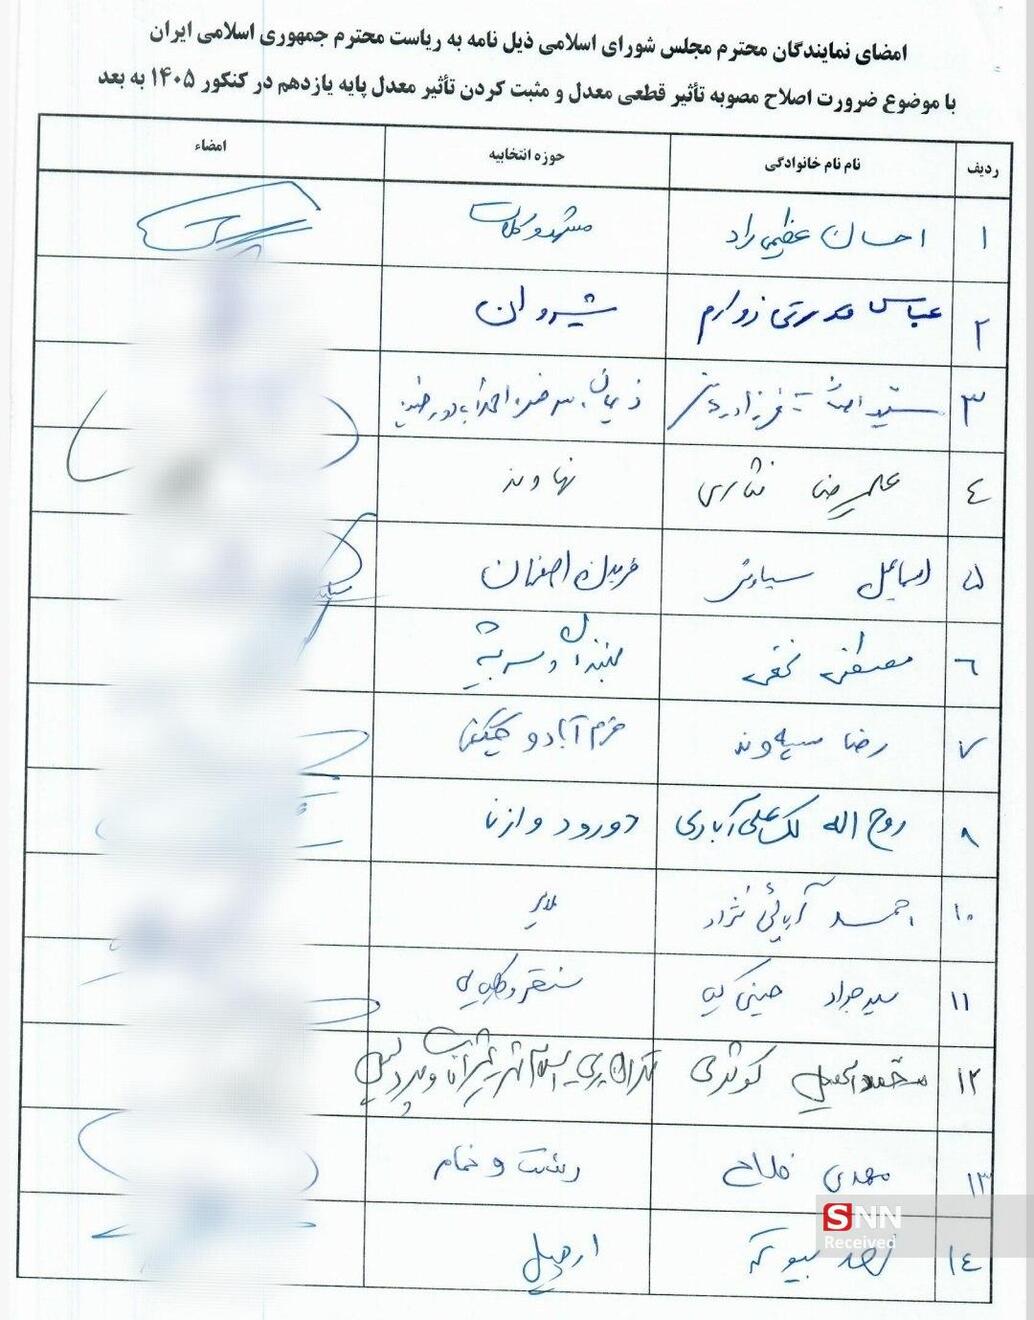 امضای نمایندگان محترم مجلس شورای اسلامی ذیل نامه به ریاست محترم جمهوری اسلامی ایران
با موضوع ضرورت اصلاح مصوبه تأثیر قطعی معدل و مثبت کردن تأثیر معدل پایه یازدهم در کنکور ۱۴۰۵ به بعد
ردیف نام نام خانوادگی حوزه انتخابیه امضاء
۱ احسان عظیمی راد مشهد و کلات
۲ عباس قدرتی زوارم شیروان
۳
۴ علیرضا نثاری نهاوند
۵ اسماعیل سیاوشی فریدن اصفهان
۶ مصطفی نخعی
۷ رضا سپهوند خرم آباد و چگنی
۸ روح اله لک علی آبادی دورود و ازنا
۱۰ احمد آریائی نژاد ملایر
۱۱ سید جواد حسینی کیا سنقر و کلیایی
۱۲ کوثری تهران ری
۱۳ مهدی فلاح رشت و خمام
۱۴ اردبیل
SNN
Received